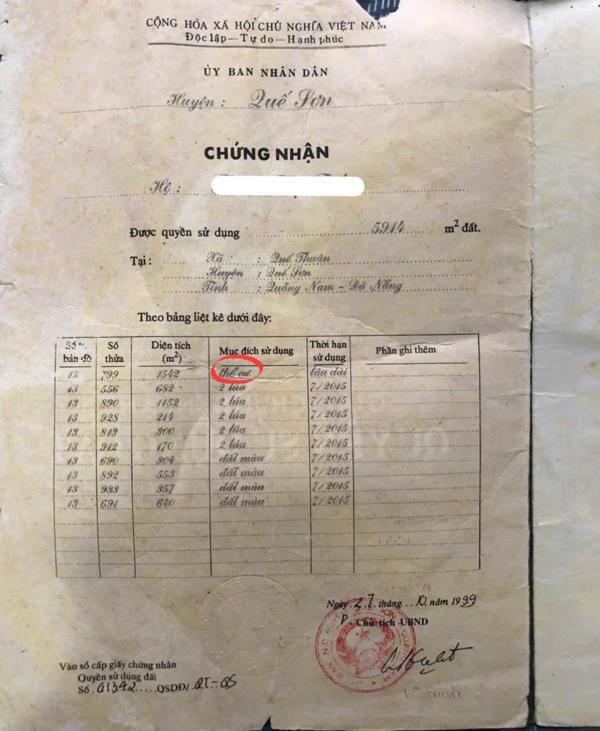 CỘNG HÒA XÃ HỘI CHỦ NGHĨA VIỆT NAM
Độc lập - Tự do - Hạnh phúc
ỦY BAN NHÂN DÂN
Huyện : Quế Sơn
CHỨNG NHẬN
Hộ :
Được quyền sử dụng 5914 m² đất.
Tại : Xã : Quế Thuận
Huyện : Quế Sơn
Tỉnh : Quảng Nam - Đà Nẵng
Theo bảng liệt kê dưới đây:
Số tờ bản đồ Số thửa Diện tích (m²) Mục đích sử dụng Thời hạn sử dụng Phần ghi thêm
13 799 1542 thổ cư lâu dài
13 556 682 2 lúa 7/2015
13 890 1152 2 lúa 7/2015
13 928 214 2 lúa 7/2015
13 813 300 2 lúa 7/2015
13 912 170 2 lúa 7/2015
13 690 304 đất màu 7/2015
13 892 553 đất màu 7/2015
13 933 357 đất màu 7/2015
13 691 640 đất màu 7/2015
Ngày 27 tháng 10 năm 1999
P. Chủ tịch UBND
Vào sổ cấp giấy chứng nhận
Quyền sử dụng đất
Số 01342 QSDĐ/QT-QS